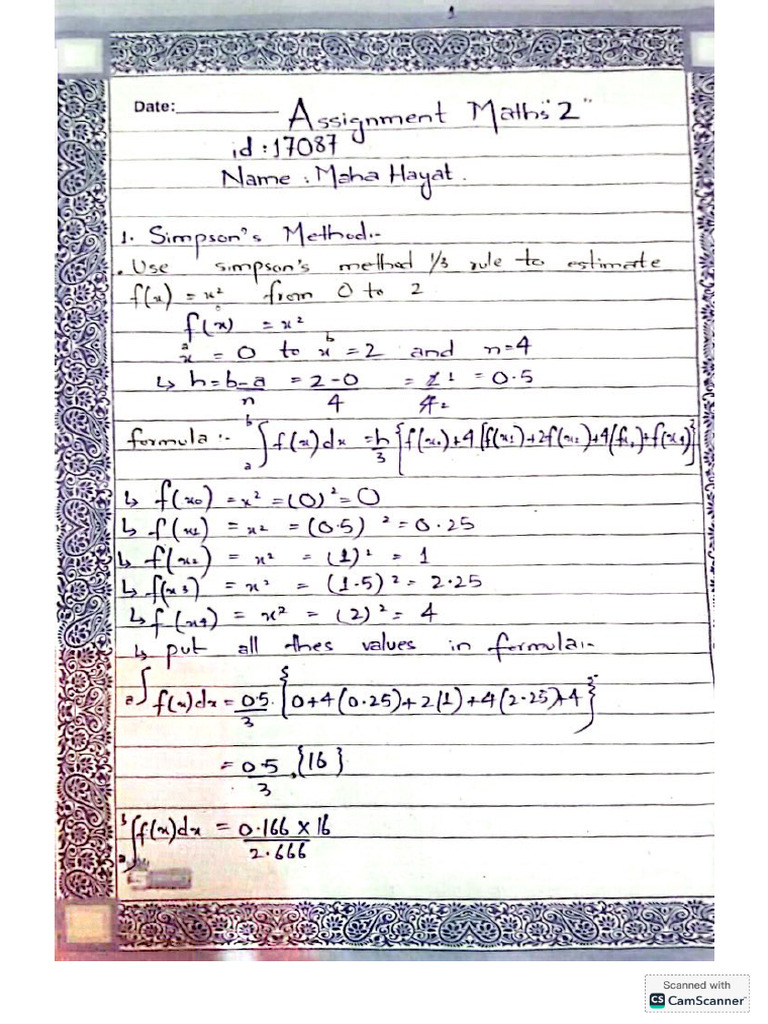 1
Date:
Assignment Maths "2"
id : 17087
Name : Maha Hayat.
1. Simpson's Method:-
. Use simpson's method 1/3 rule to estimate
f(x) = x² from 0 to 2
f(x) = x²
a b
x = 0 to x = 2 and n=4
↳ h = b-a/n = 2-0/4 = 2 1/4 2 = 0.5
formula :- a∫b f(x)dx = h/3 {f(x₀)+4[f(x₁)+2f(x₂)+4(fx₃)+f(x₄)}
↳ f(x₀) = x² = (0)² = 0
↳ f(x₁) = x² = (0.5)² = 0.25
↳ f(x₂) = x² = (1)² = 1
↳ f(x₃) = x² = (1.5)² = 2.25
↳ f(x₄) = x² = (2)² = 4
↳ put all thes values in formula:-
a∫ f(x)dx = 0.5/3 {0+4(0.25)+2(1)+4(2.25)+4}
= 0.5/3 {16}
a∫b f(x)dx = 0.166 x 16
2.666
Scanned with
CS CamScanner